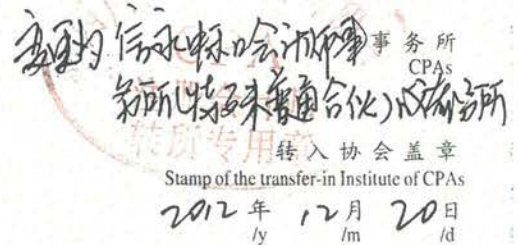 变更为 信永中和会计师事 事务所
CPAs
务所(特殊普通合伙) 分所
转所专用章
转入协会盖章
Stamp of the transfer-in Institute of CPAs
2012 年 12 月 20 日
/y /m /d